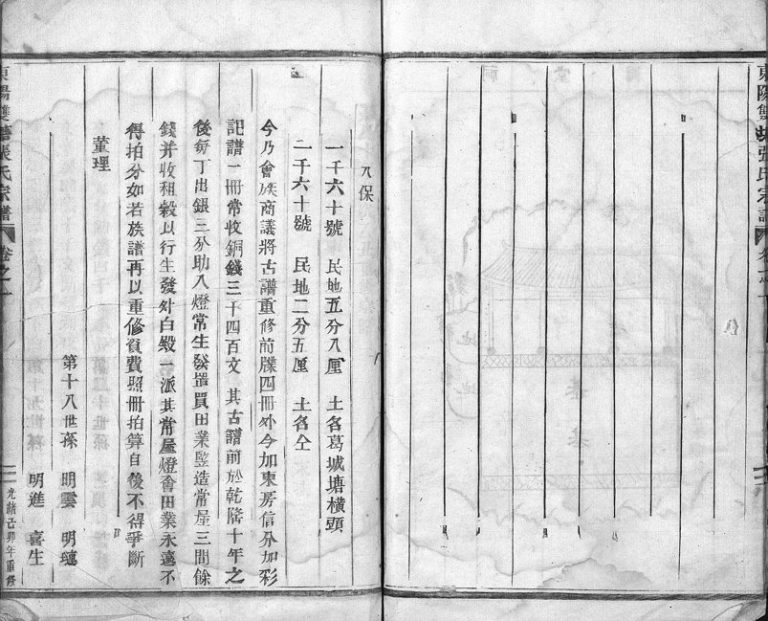 東陽雙
張氏宗譜
八保
一千六十號 民地五分八厘 土名葛城塘橫頭
二千六十號 民地二分五厘 土名仝
今乃會族商議將古譜重修前牒四冊外今加東房信分加彩
記譜一冊常收銅錢三千四百文 其古譜前於乾隆十年之
後每丁出銀三分助入燈常生發置買田業監造常屋三間餘
錢并收租穀以行生發外白毀一派其常屋燈會田業永遠不
得拍分如若族譜再以重修負費照冊拍算自後不得爭斷
董理
第十八世孫 明雲 明璁
明進 喜生
東陽雙 張氏宗譜 卷之
光緒己卯年重修